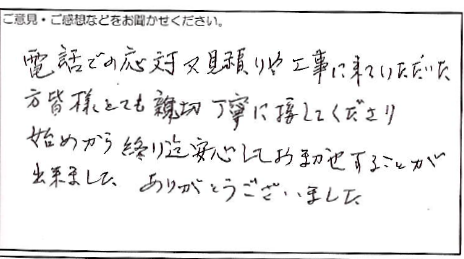 ご意見・ご感想などをお聞かせください。
電話での応対又見積りや工事に来ていただいた
方皆様とても親切丁寧に接してくださり
始めから終り迄安心してお動せすることが
出来ました ありがとうございました